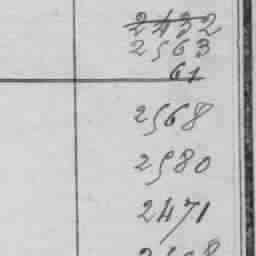 2432
2563
61
2568
2580
2471